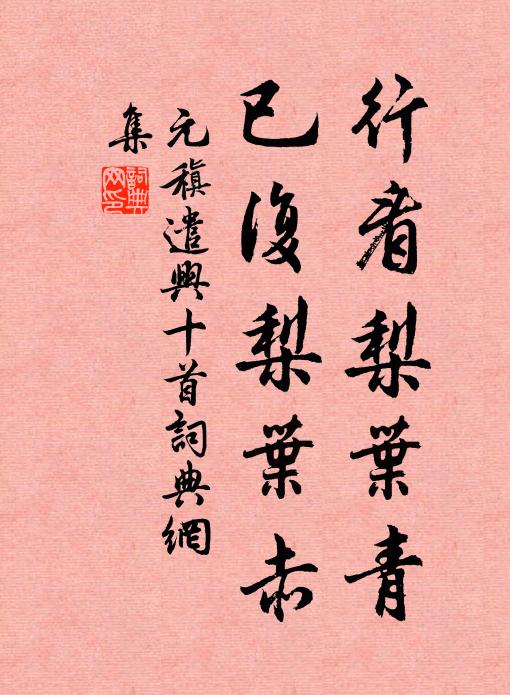 行看梨葉青
已復梨葉赤
元稹遣興十首詞典網
集
詞典
网印